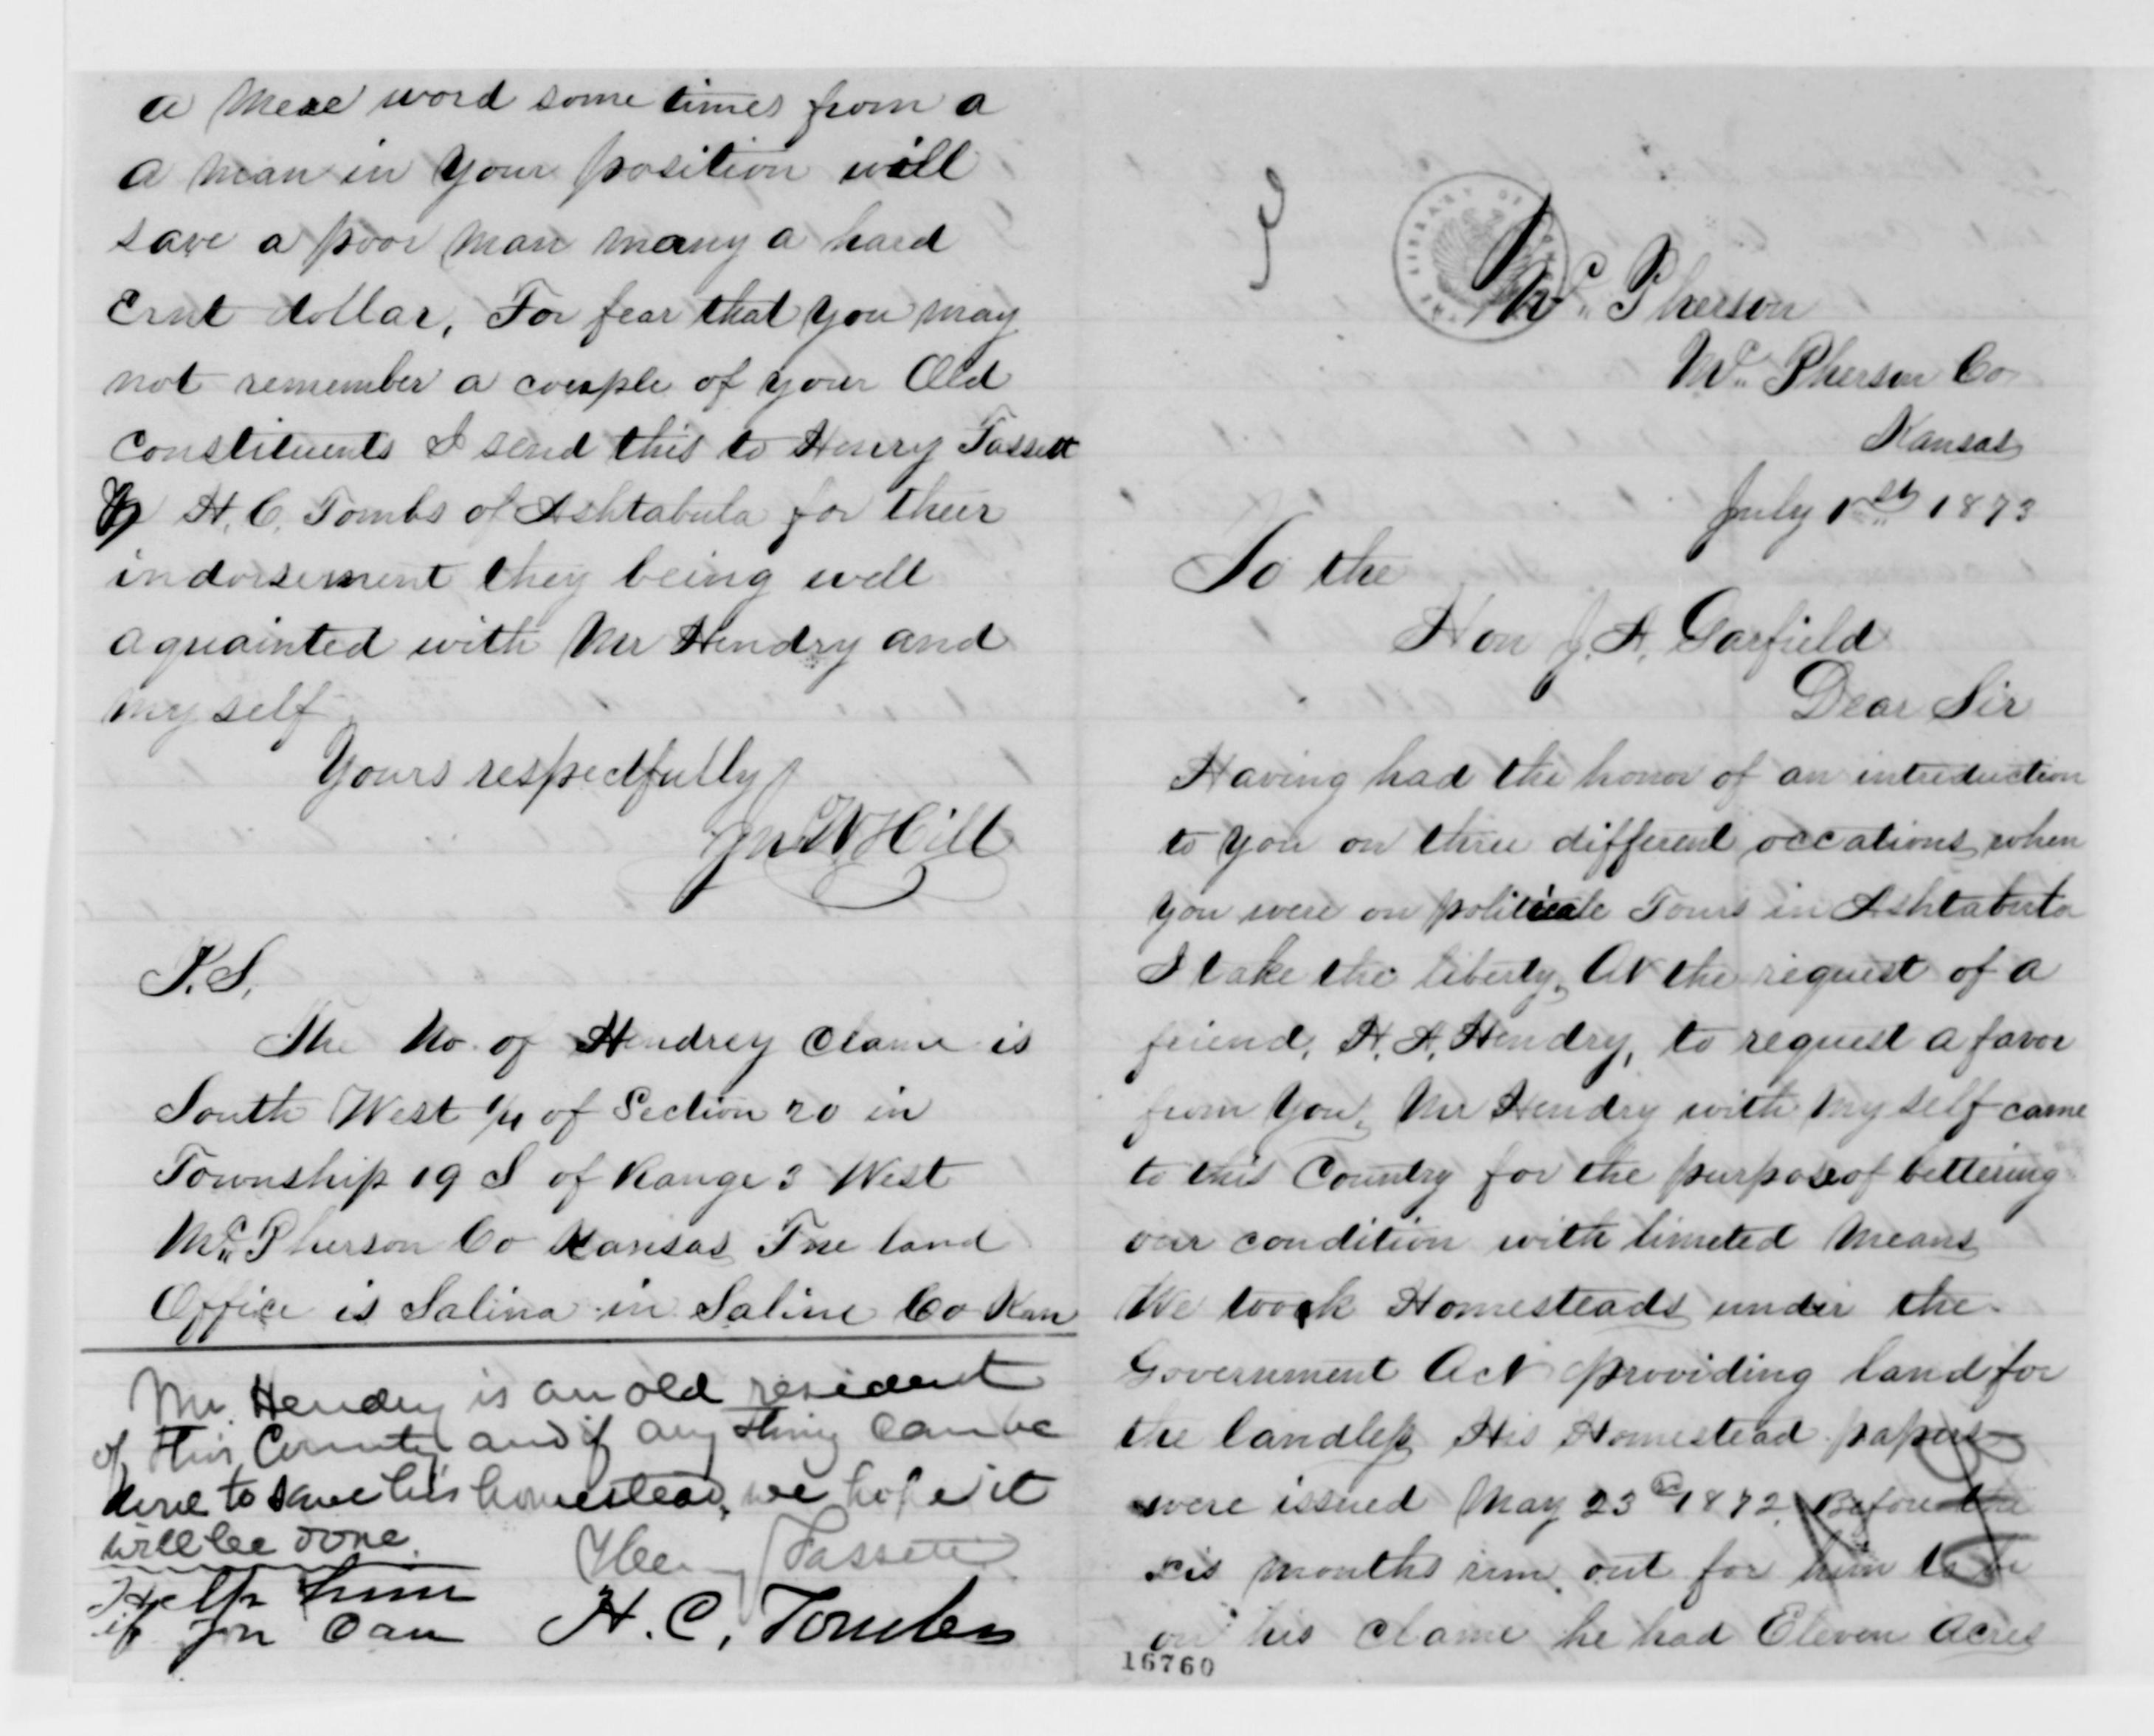 a mere word some times from a
a man in your position will
save a poor man many a hard
ernt dollar, For fear that you may
not remember a couple of your Old
constituents I send this to Henry Fassett
& H. C. Tombs of Ashtabula for their
indorsement they being well
aquainted with Mr Hendry and
my self
Yours respectfully
Jn W Hill
P.S.
The No. of Hendrey Clame is
South West 1/4 of Section 20 in
Township 19 S of Range 3 West
Mc Pherson Co Kansas The land
Office is Salina in Saline Co Kan
Mr. Hendry is an old resident
of this County and if any thing can be
done to save his homestead, we hope it
will be done.
Henry Fassett
Help him
if you can
H. C. Tombes
Mc Pherson
Mc Pherson Co
Kansas
July 1st 1873
To the
Hon J. A. Garfield
Dear Sir
Having had the honor of an introduction
to you on three different occations when
you were on politicale Tours in Ashtabula
I take the liberty, At the request of a
friend, H. A. Hendry, to request a favor
from you, Mr Hendry with my self came
to this Country for the purpose of bettering
our condition with limeted means
We toock Homesteads under the
Government Act providing land for
the landless His Homestead papers
were issued May 23d 1872, Before the
six months run out for him to be
on his Clame he had Eleven Acres
16760